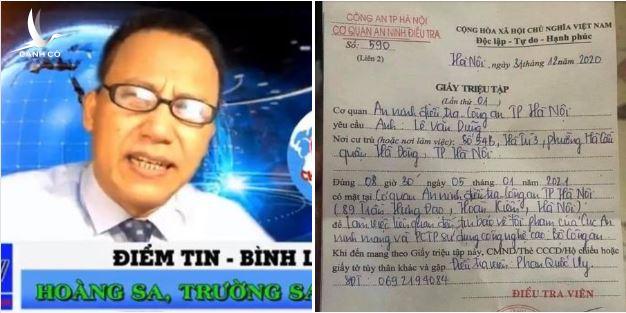 DANCO
ĐIỂM TIN - BÌNH L
HOÀNG SA, TRƯỜNG SA
CÔNG AN TP HÀ NỘI
CƠ QUAN AN NINH ĐIỀU TRA
Số: 590
(Liên 2)
CỘNG HÒA XÃ HỘI CHỦ NGHĨA VIỆT NAM
Độc lập - Tự do - Hạnh phúc
Hà Nội, ngày 31 tháng 12 năm 2020
GIẤY TRIỆU TẬP
(Lần thứ 01)
Cơ quan An ninh điều tra Công an TP Hà Nội
yêu cầu Anh: Lê Văn Dũng
Nơi cư trú (hoặc nơi làm việc): Số 54B, Hà Trì 3, phường Hà Cầu
quận Hà Đông, TP Hà Nội
Đúng 08 giờ 30 ngày 05 tháng 01 năm 2021
có mặt tại Cơ quan An ninh điều tra Công an TP Hà Nội
(89 Trần Hưng Đạo, Hoàn Kiếm, Hà Nội)
để Làm việc liên quan đến tin báo về tội phạm của Cục An
ninh mạng và PCTP sử dụng công nghệ cao. Bộ Công an
Khi đến mang theo Giấy triệu tập này, CMND/Thẻ CCCD/Hộ chiếu hoặc
giấy tờ tùy thân khác và gặp Điều tra viên: Phan Quốc Uy.
SĐT: 0692194084
ĐIỀU TRA VIÊN